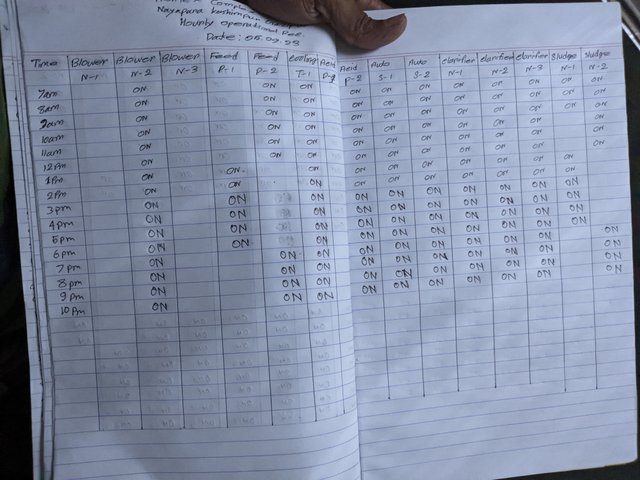 Nayapara kashimpur
Hourly operational Rec.
Date: 05.09.23
Time Blower Blower Blower Feed Feed Cooling Acid Acid Auto Auto clarifier clarifier clarifier Sludge sludge
N-1 N-2 N-3 P-1 P-2 T-1 P-1 P-2 S-1 S-2 N-1 N-2 N-3 N-1 N-2
7am ON ON ON ON ON ON ON ON ON ON ON
8am ON ON ON ON ON ON ON ON ON ON ON
9am ON ON ON ON ON ON ON ON ON ON
10am ON ON ON ON ON ON ON ON ON ON
11am ON ON ON ON ON ON ON ON ON ON
12pm ON ON ON ON ON ON ON ON ON ON
1pm ON ON ON ON ON ON ON ON ON ON
2pm ON ON ON ON ON ON ON ON ON ON
3pm ON ON ON ON ON ON ON ON ON ON
4pm ON ON ON ON ON ON ON ON ON ON
5pm ON ON ON ON ON ON ON ON ON ON
6pm ON ON ON ON ON ON ON ON ON ON
7pm ON ON ON ON ON ON ON ON ON ON
8pm ON ON ON ON ON ON ON ON ON ON
9pm ON ON ON ON ON ON ON ON ON ON
10pm ON ON ON ON ON ON ON ON ON ON